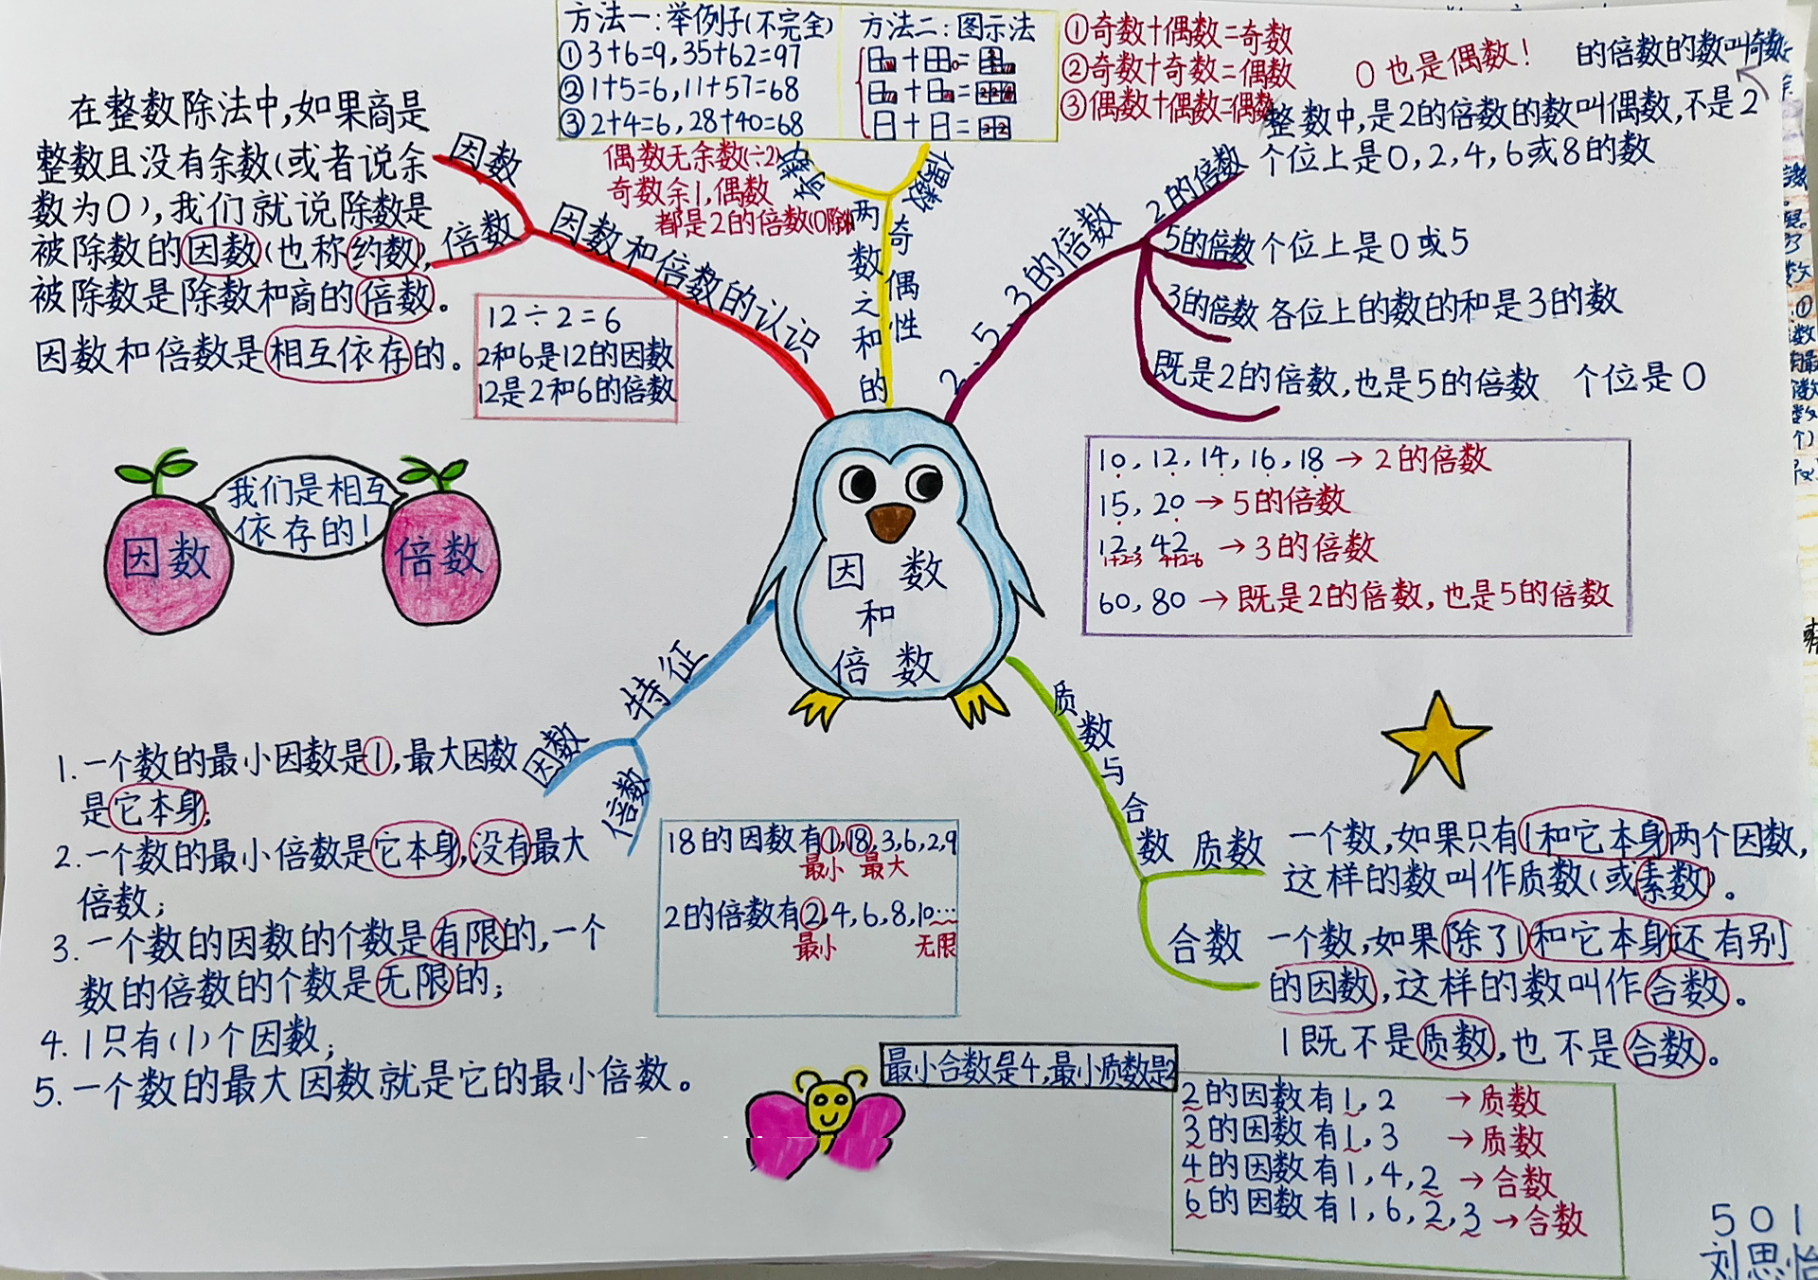 方法一:举例子(不完全)
①3+6=9,35+62=97
②1+5=6,11+57=68
③2+4=6,28+40=68
方法二:图示法
①奇数+偶数=奇数
②奇数+奇数=偶数
③偶数+偶数=偶数
0也是偶数!
的倍数的数叫奇数
整数中,是2的倍数的数叫偶数,不是2
在整数除法中,如果商是
整数且没有余数(或者说余
数为0),我们就说除数是
被除数的因数(也称约数),
被除数是除数和商的倍数。
因数和倍数是相互依存的。
因数
倍数
因数和倍数的认识
12÷2=6
2和6是12的因数
12是2和6的倍数
偶数无余数(÷2)
奇数余1,偶数
都是2的倍数(0除外)
奇数
偶数
两数之和的
奇偶性
2、5、3的倍数
2的倍数
个位上是0,2,4,6或8的数
5的倍数 个位上是0或5
3的倍数 各位上的数的和是3的数
既是2的倍数,也是5的倍数 个位是0
10,12,14,16,18→2的倍数
15,20→5的倍数
12,42→3的倍数
1+2=3 4+2=6
60,80→既是2的倍数,也是5的倍数
因数
我们是相互
依存的!
倍数
因数
和
倍数
特征
因数
倍数
1.一个数的最小因数是1,最大因数
是它本身;
2.一个数的最小倍数是它本身,没有最大
倍数;
3.一个数的因数的个数是有限的,一个
数的倍数的个数是无限的;
4.1只有(1)个因数;
5.一个数的最大因数就是它的最小倍数。
18的因数有1,18,3,6,2,9
最小 最大
2的倍数有2,4,6,8,10…
最小 无限
质数与合数
质数
一个数,如果只有1和它本身两个因数,
这样的数叫作质数(或素数)。
合数
一个数,如果除了1和它本身还有别
的因数,这样的数叫作合数。
1既不是质数,也不是合数。
最小合数是4,最小质数是2
2的因数有1,2 →质数
3的因数有1,3 →质数
4的因数有1,4,2 →合数
6的因数有1,6,2,3→合数
501
刘思怡